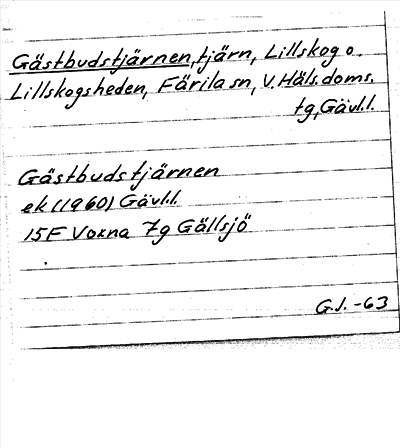 Gästbudstjärnen, tjärn, Lillskog o.
Lillskogsheden, Färila sn, V. Häls. doms.
tg, Gävl.l.
Gästbudstjärnen
ek (1960) Gävl.l.
15F Voxna 7g Gällsjö
G.J. -63